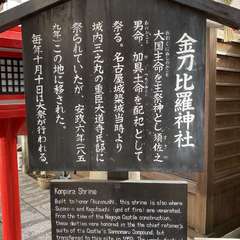 金刀比羅神社
大国主命を主祭神とし須佐之
男命、加具土命を配祀として
祭る。名古屋城築城当時より
城内三之丸の重臣大道寺氏邸に
祭られていたが、安政六年一八五
九年この地に移された。
毎年十月十日は大祭が行われる。
Konpira Shrine
Built to honor Okuninushi, this shrine is also where
Susano-o and Kagutsuchi (god of fire) are venerated.
From the time of the Nagoya Castle construction,
these deities were honored in the the chief retainer's
suite of the Castle's Sannomaru Compound, but
transferred to this site in